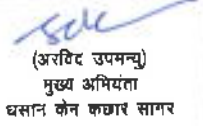 (अरविंद उपमन्यु)
मुख्य अभियंता
धसान केन कछार सागर